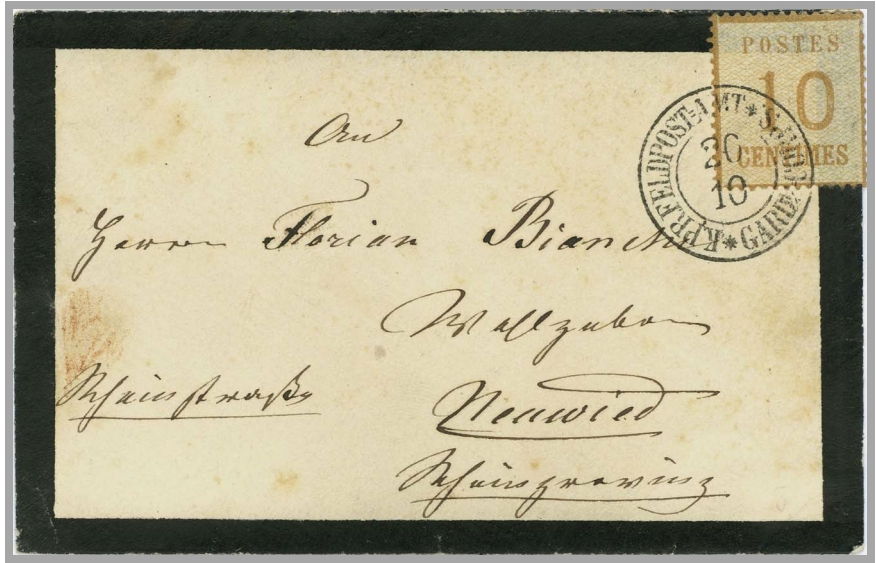 POSTES
10
CENTIMES
K.PR.FELDPOST-AMT * * GARDE
20
10
An
Herrn Florian Bianchi
Wohlgeboren
Rheinstraße
Neuwied
Rheinprovinz